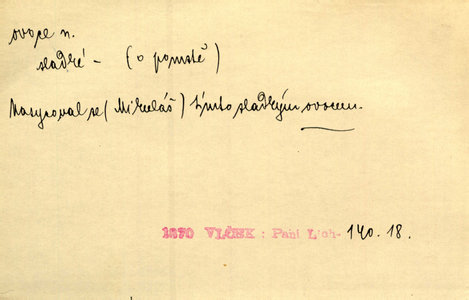 ovoce n.
sladké - (o pomstě)
Nasycoval se (Mikuláš) tímto sladkým ovocem.
1870 VLČEK : Paní Lich- 140. 18.